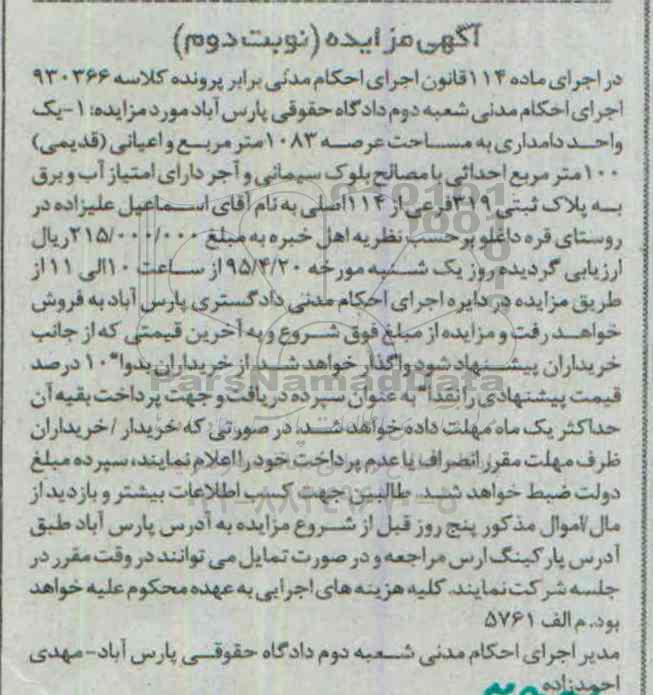 آگهی مزایده (نوبت دوم)
در اجرای ماده ۱۱۴ قانون اجرای احکام مدنی برابر پرونده کلاسه ۹۳۰۳۶۶
اجرای احکام مدنی شعبه دوم دادگاه حقوقی پارس آباد مورد مزایده: ۱-یک
واحد دامداری به مساحت عرصه ۱۰۸۳ متر مربع و اعیانی (قدیمی)
۱۰۰ متر مربع احداثی با مصالح بلوک سیمانی و آجر دارای امتیاز آب و برق
به پلاک ثبتی ۳۱۹ فرعی از ۱۱۴ اصلی به نام آقای اسماعیل علیزاده در
روستای قره داغلو برحسب نظریه اهل خبره به مبلغ ۲۱۵/۰۰۰/۰۰۰ ریال
ارزیابی گردیده روز یک شنبه مورخه ۹۵/۴/۲۰ از ساعت ۱۰ الی ۱۱ از
طریق مزایده در دایره اجرای احکام مدنی دادگستری پارس آباد به فروش
خواهد رفت و مزایده از مبلغ فوق شروع و به آخرین قیمتی که از جانب
خریداران پیشنهاد شود واگذار خواهد شد از خریداران بدوا" ۱۰ درصد
قیمت پیشنهادی را نقدا" به عنوان سپرده دریافت و جهت پرداخت بقیه آن
حداکثر یک ماه مهلت داده خواهد شد، در صورتی که خریدار / خریداران
ظرف مهلت مقرر انصراف یا عدم پرداخت خود را اعلام نمایند، سپرده مبلغ
دولت ضبط خواهد شد. طالبین جهت کسب اطلاعات بیشتر و بازدید از
مال/اموال مذکور پنج روز قبل از شروع مزایده به آدرس پارس آباد طبق
آدرس پارکینگ ارس مراجعه و در صورت تمایل می توانند در وقت مقرر در
جلسه شرکت نمایند. کلیه هزینه های اجرایی به عهده محکوم علیه خواهد
بود. م الف ۵۷۶۱
مدیر اجرای احکام مدنی شعبه دوم دادگاه حقوقی پارس آباد-مهدی
احمدزاده
ParsNamadData